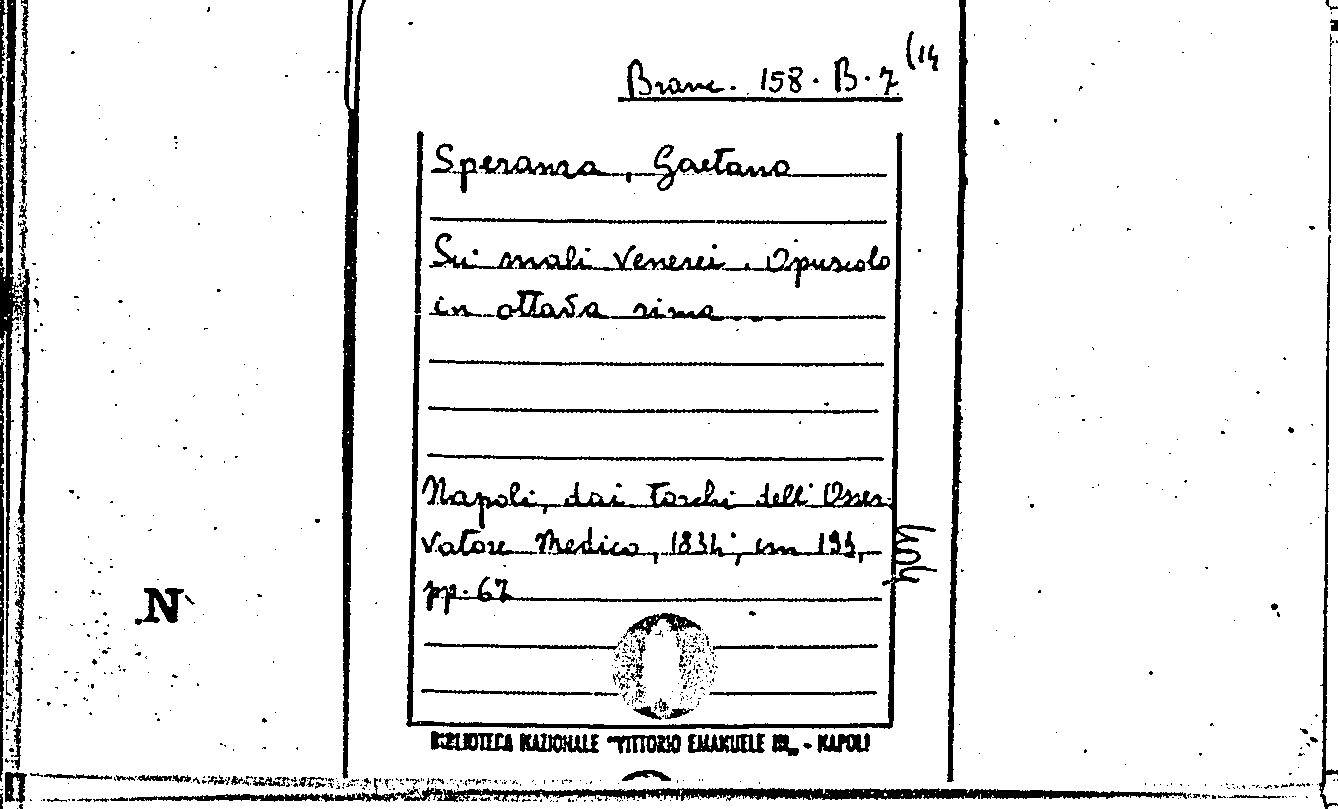 Branc. 158. B. 7 (14
Speranza, Gaetano
Sui mali venerei. Opuscolo
in ottava rima
Napoli, dai torchi dell'Osser-
vatore Medico, 1834; cm 19½,
pp. 67
N
BIBLIOTECA NAZIONALE "VITTORIO EMANUELE III" - NAPOLI